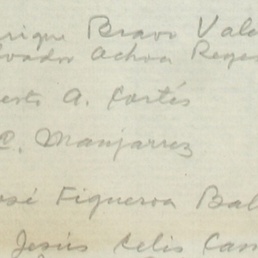 rique Bravo Vale
vador Ochoa Reyes
erto A. Cortés
C. Manjarrez
osé Figueroa Bal
Jesús Celis Cam